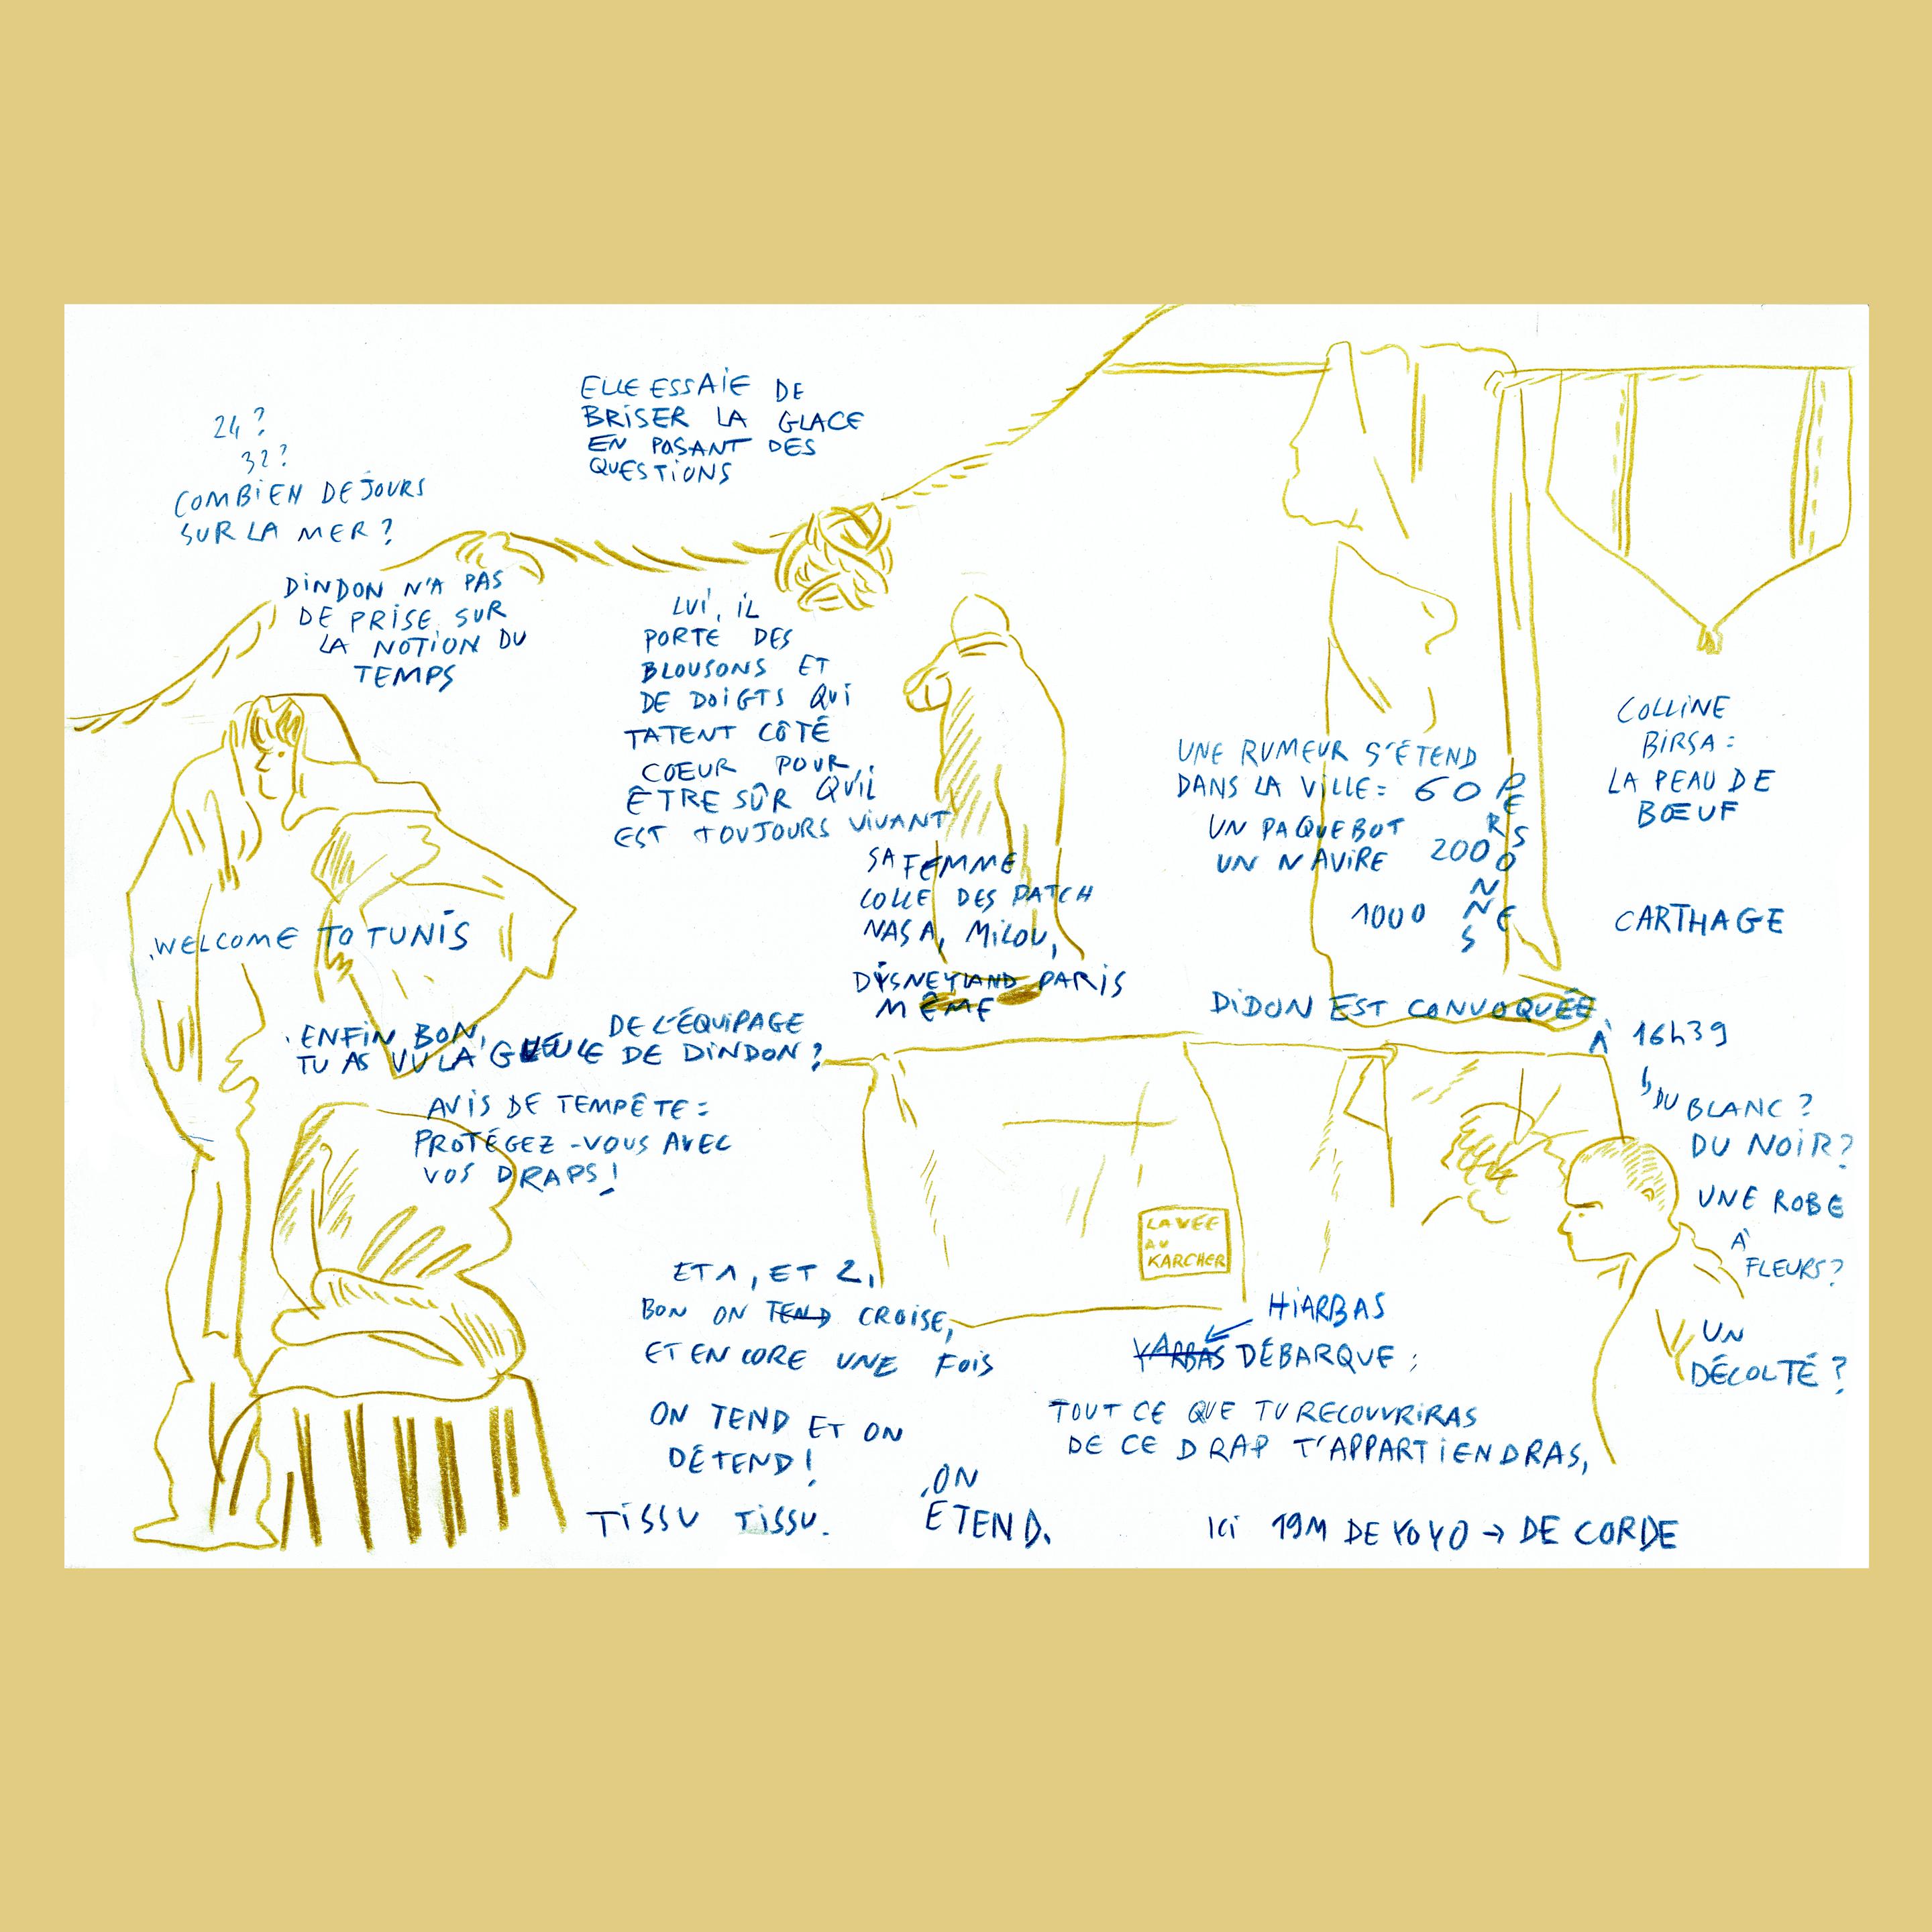 24 ?
32 ?
COMBIEN DE JOURS
SUR LA MER ?
ELLE ESSAIE DE
BRISER LA GLACE
EN POSANT DES
QUESTIONS
DINDON N'A PAS
DE PRISE SUR
LA NOTION DU
TEMPS
LUI, IL
PORTE DES
BLOUSONS ET
DE DOIGTS QUI
TATENT CÔTÉ
COEUR POUR
ÊTRE SÛR QU'IL
EST TOUJOURS VIVANT
SA FEMME
COLLE DES PATCH
NASA, MILOU,
DISNEYLAND PARIS
MÊME
WELCOME TO TUNIS
ENFIN BON, DE L'ÉQUIPAGE
TU AS VU LA GUEULE DE DINDON ?
AVIS DE TEMPÊTE :
PROTÉGEZ-VOUS AVEC
VOS DRAPS !
UNE RUMEUR S'ÉTEND
DANS LA VILLE : 60 PERSONNES
UN PAQUEBOT
UN NAVIRE 2000
1000
COLLINE
BIRSA :
LA PEAU DE
BŒUF
CARTHAGE
DIDON EST CONVOQUÉE
À 16h39
↳ DU BLANC ?
DU NOIR ?
UNE ROBE
À
FLEURS ?
UN
DÉCOLTÉ ?
LAVÉE
AU
KARCHER
ET 1, ET 2,
BON ON TEND CROISE,
ET ENCORE UNE FOIS
ON TEND ET ON
DÉTEND !
TISSU TISSU.
ON
ETEND.
HIARBAS
YARBAS DÉBARQUE :
TOUT CE QUE TU RECOUVRIRAS
DE CE DRAP T'APPARTIENDRAS,
ICI 19M DE YOYO → DE CORDE